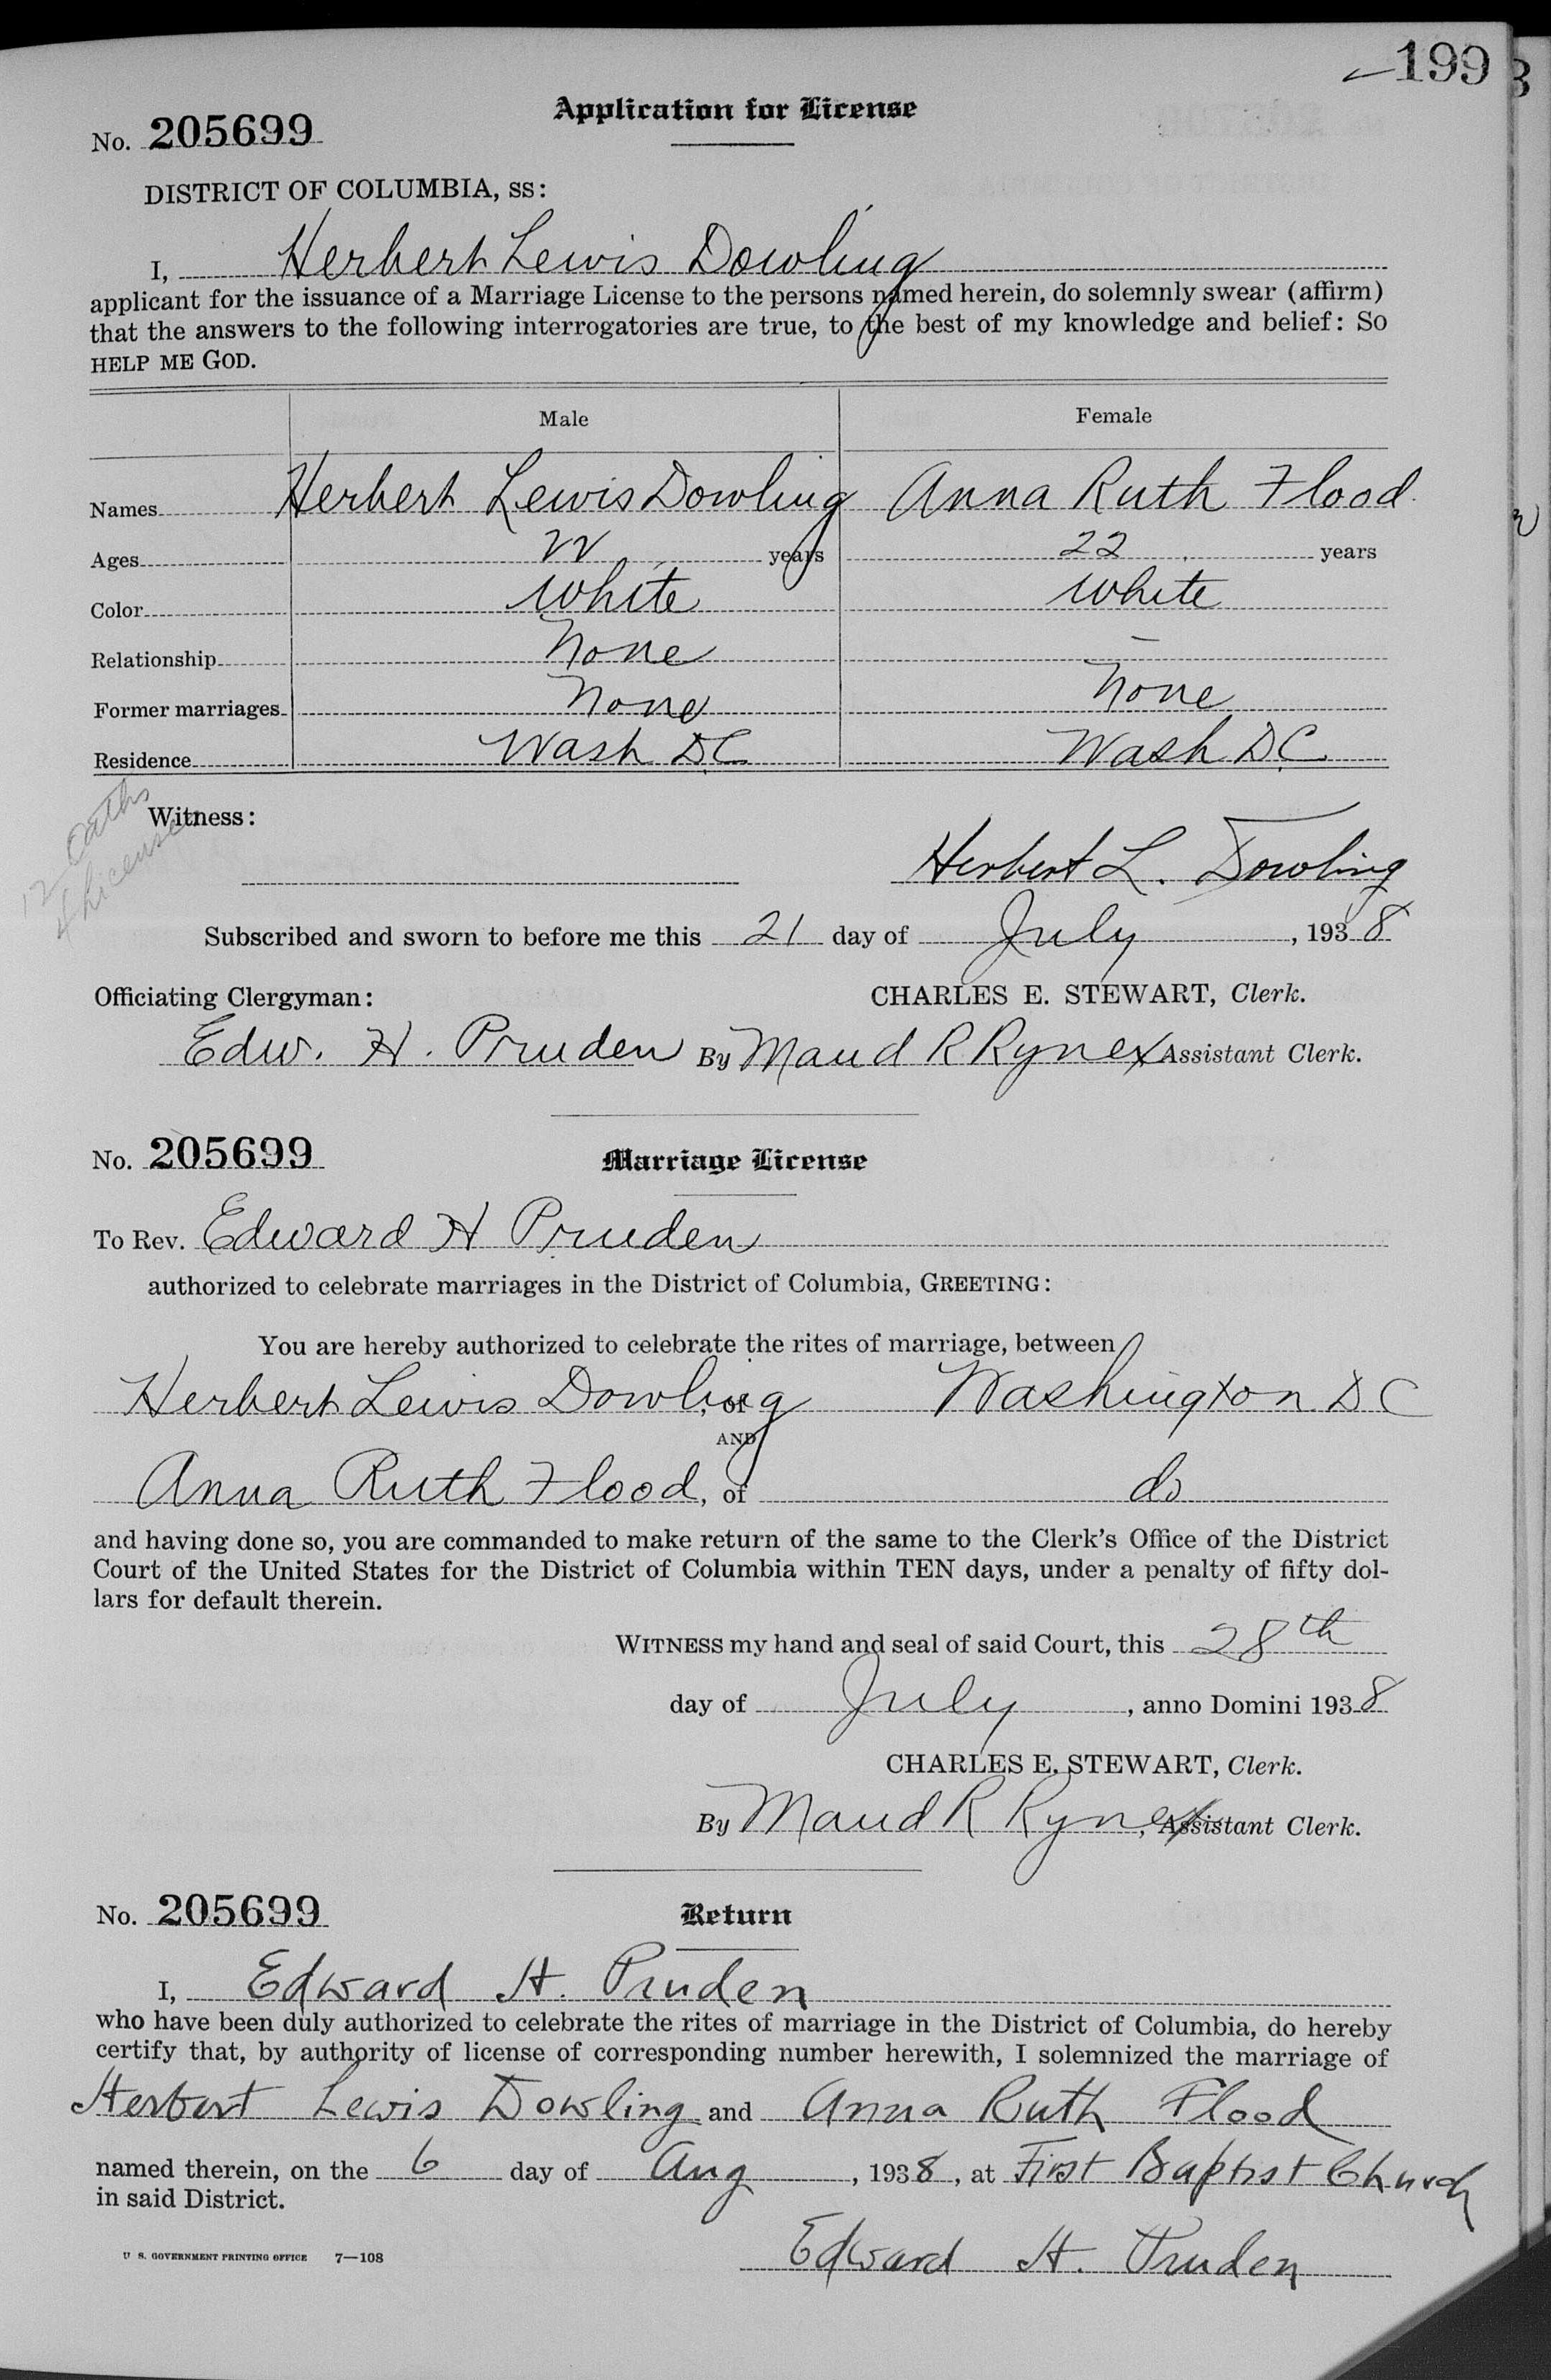 199
Application for License
No. 205699
DISTRICT OF COLUMBIA, SS:
I, Herbert Lewis Dowling
applicant for the issuance of a Marriage License to the persons named herein, do solemnly swear (affirm)
that the answers to the following interrogatories are true, to the best of my knowledge and belief: SO
HELP ME GOD.
Male Female
Names Herbert Lewis Dowling Anna Ruth Flood
Ages 22 years 22 years
Color White White
Relationship None —
Former marriages None None
Residence Wash D.C. Wash D.C.
12 Oaths
4 Licenses
Witness:
Herbert L. Dowling
Subscribed and sworn to before me this 21 day of July, 1938
Officiating Clergyman: CHARLES E. STEWART, Clerk.
Edw. H. Pruden By Maud R Rynex Assistant Clerk.
No. 205699 Marriage License
To Rev. Edward H Pruden
authorized to celebrate marriages in the District of Columbia, GREETING:
You are hereby authorized to celebrate the rites of marriage, between
Herbert Lewis Dowling, of Washington D C
AND
Anna Ruth Flood, of do
and having done so, you are commanded to make return of the same to the Clerk's Office of the District
Court of the United States for the District of Columbia within TEN days, under a penalty of fifty dol-
lars for default therein.
WITNESS my hand and seal of said Court, this 28th
day of July, anno Domini 1938
CHARLES E. STEWART, Clerk.
By Maud R Rynex, Assistant Clerk.
No. 205699 Return
I, Edward H. Pruden
who have been duly authorized to celebrate the rites of marriage in the District of Columbia, do hereby
certify that, by authority of license of corresponding number herewith, I solemnized the marriage of
Herbert Lewis Dowling and Anna Ruth Flood
named therein, on the 6 day of Aug, 1938, at First Baptist Church
in said District.
U. S. GOVERNMENT PRINTING OFFICE 7—108
Edward H. Pruden